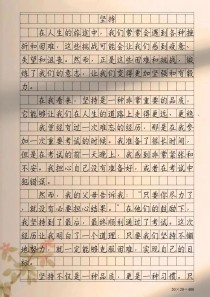 坚持
在人生的旅途中，我们常常会遇到各种挫折和困难，这些挑战可能会让我们感到疲惫、失望和沮丧。然而，正是这些困难和挑战，锻炼了我们的意志，让我们变得更加坚强和有毅力。
在我看来，坚持是一种非常重要的品质，它能够让我们在人生的道路上走得更远、更稳。
我曾经有过一次难忘的经历，那是我参加一次重要的考试。我准备了很长时间，但是在考试的前一天晚上，我感到非常紧张和不安。我担心自己没有准备好，或者在考试中犯错误。
然而，我的父母告诉我，“只要你尽力了，就没有必要担心结果。”在他们的鼓励下，我坚持到了最后，最终顺利通过了考试。这次经历让我明白了一个道理，只要我们坚持不懈地努力，就一定能够克服困难，实现自己的目标。
坚持不仅是一种品质，更是一种习惯。只